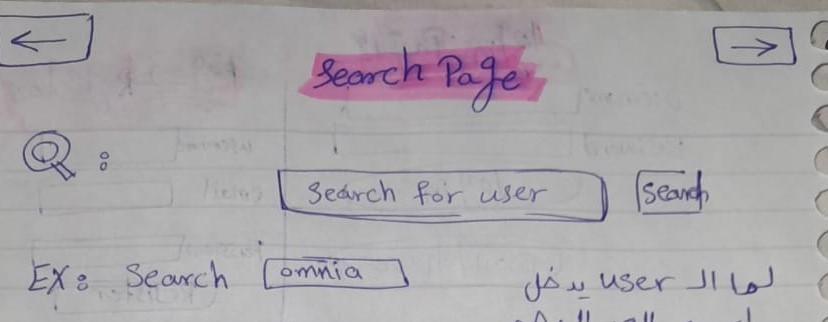 Search Page
Search for user
Search
Ex: Search omnia
لما الـ user يدخل